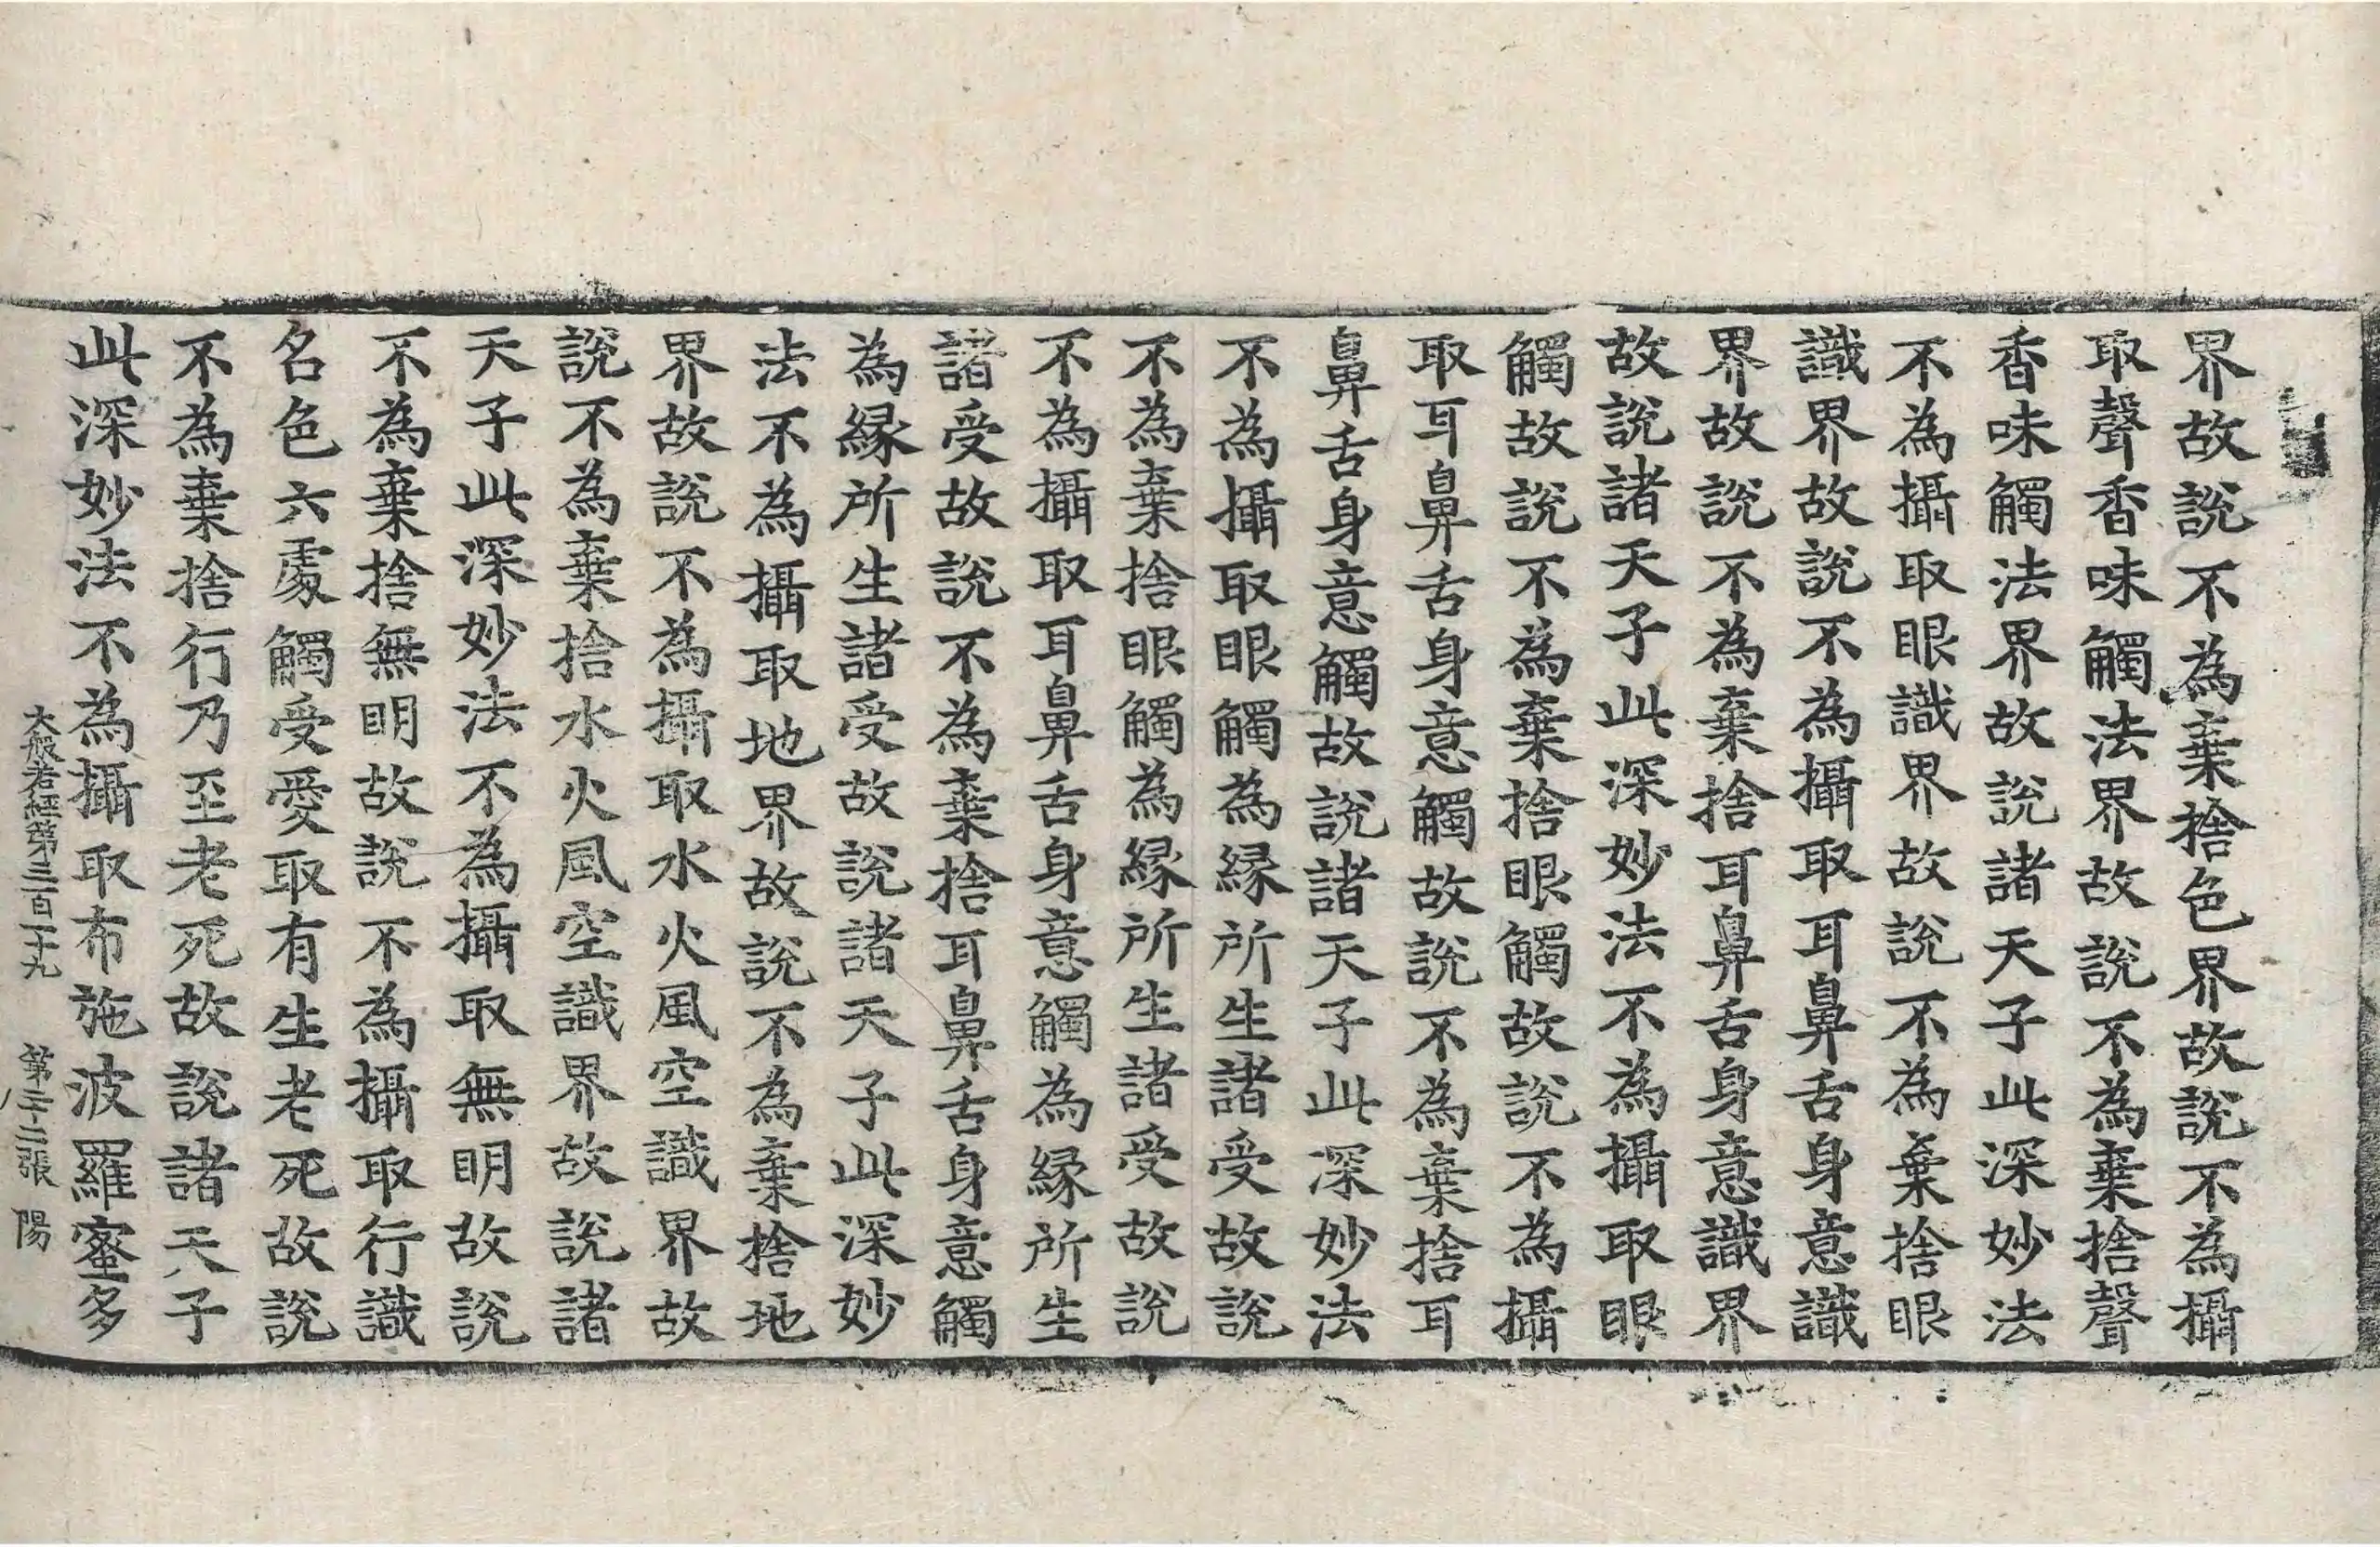 界故說不為棄捨色界故說不為攝
取聲香味觸法界故說不為棄捨聲
香味觸法界故說諸天子此深妙法
不為攝取眼識界故說不為棄捨眼
識界故說不為攝取耳鼻舌身意識
界故說不為棄捨耳鼻舌身意識界
故說諸天子此深妙法不為攝取眼
觸故說不為棄捨眼觸故說不為攝
取耳鼻舌身意觸故說不為棄捨耳
鼻舌身意觸故說諸天子此深妙法
不為攝取眼觸為緣所生諸受故說
不為棄捨眼觸為緣所生諸受故說
不為攝取耳鼻舌身意觸為緣所生
諸受故說不為棄捨耳鼻舌身意觸
為緣所生諸受故說諸天子此深妙
法不為攝取地界故說不為棄捨地
界故說不為攝取水火風空識界故
說不為棄捨水火風空識界故說諸
天子此深妙法不為攝取無明故說
不為棄捨無明故說不為攝取行識
名色六處觸受愛取有生老死故說
不為棄捨行乃至老死故說諸天子
此深妙法不為攝取布施波羅蜜多
大般若經第三百一十九 第二十二張 陽